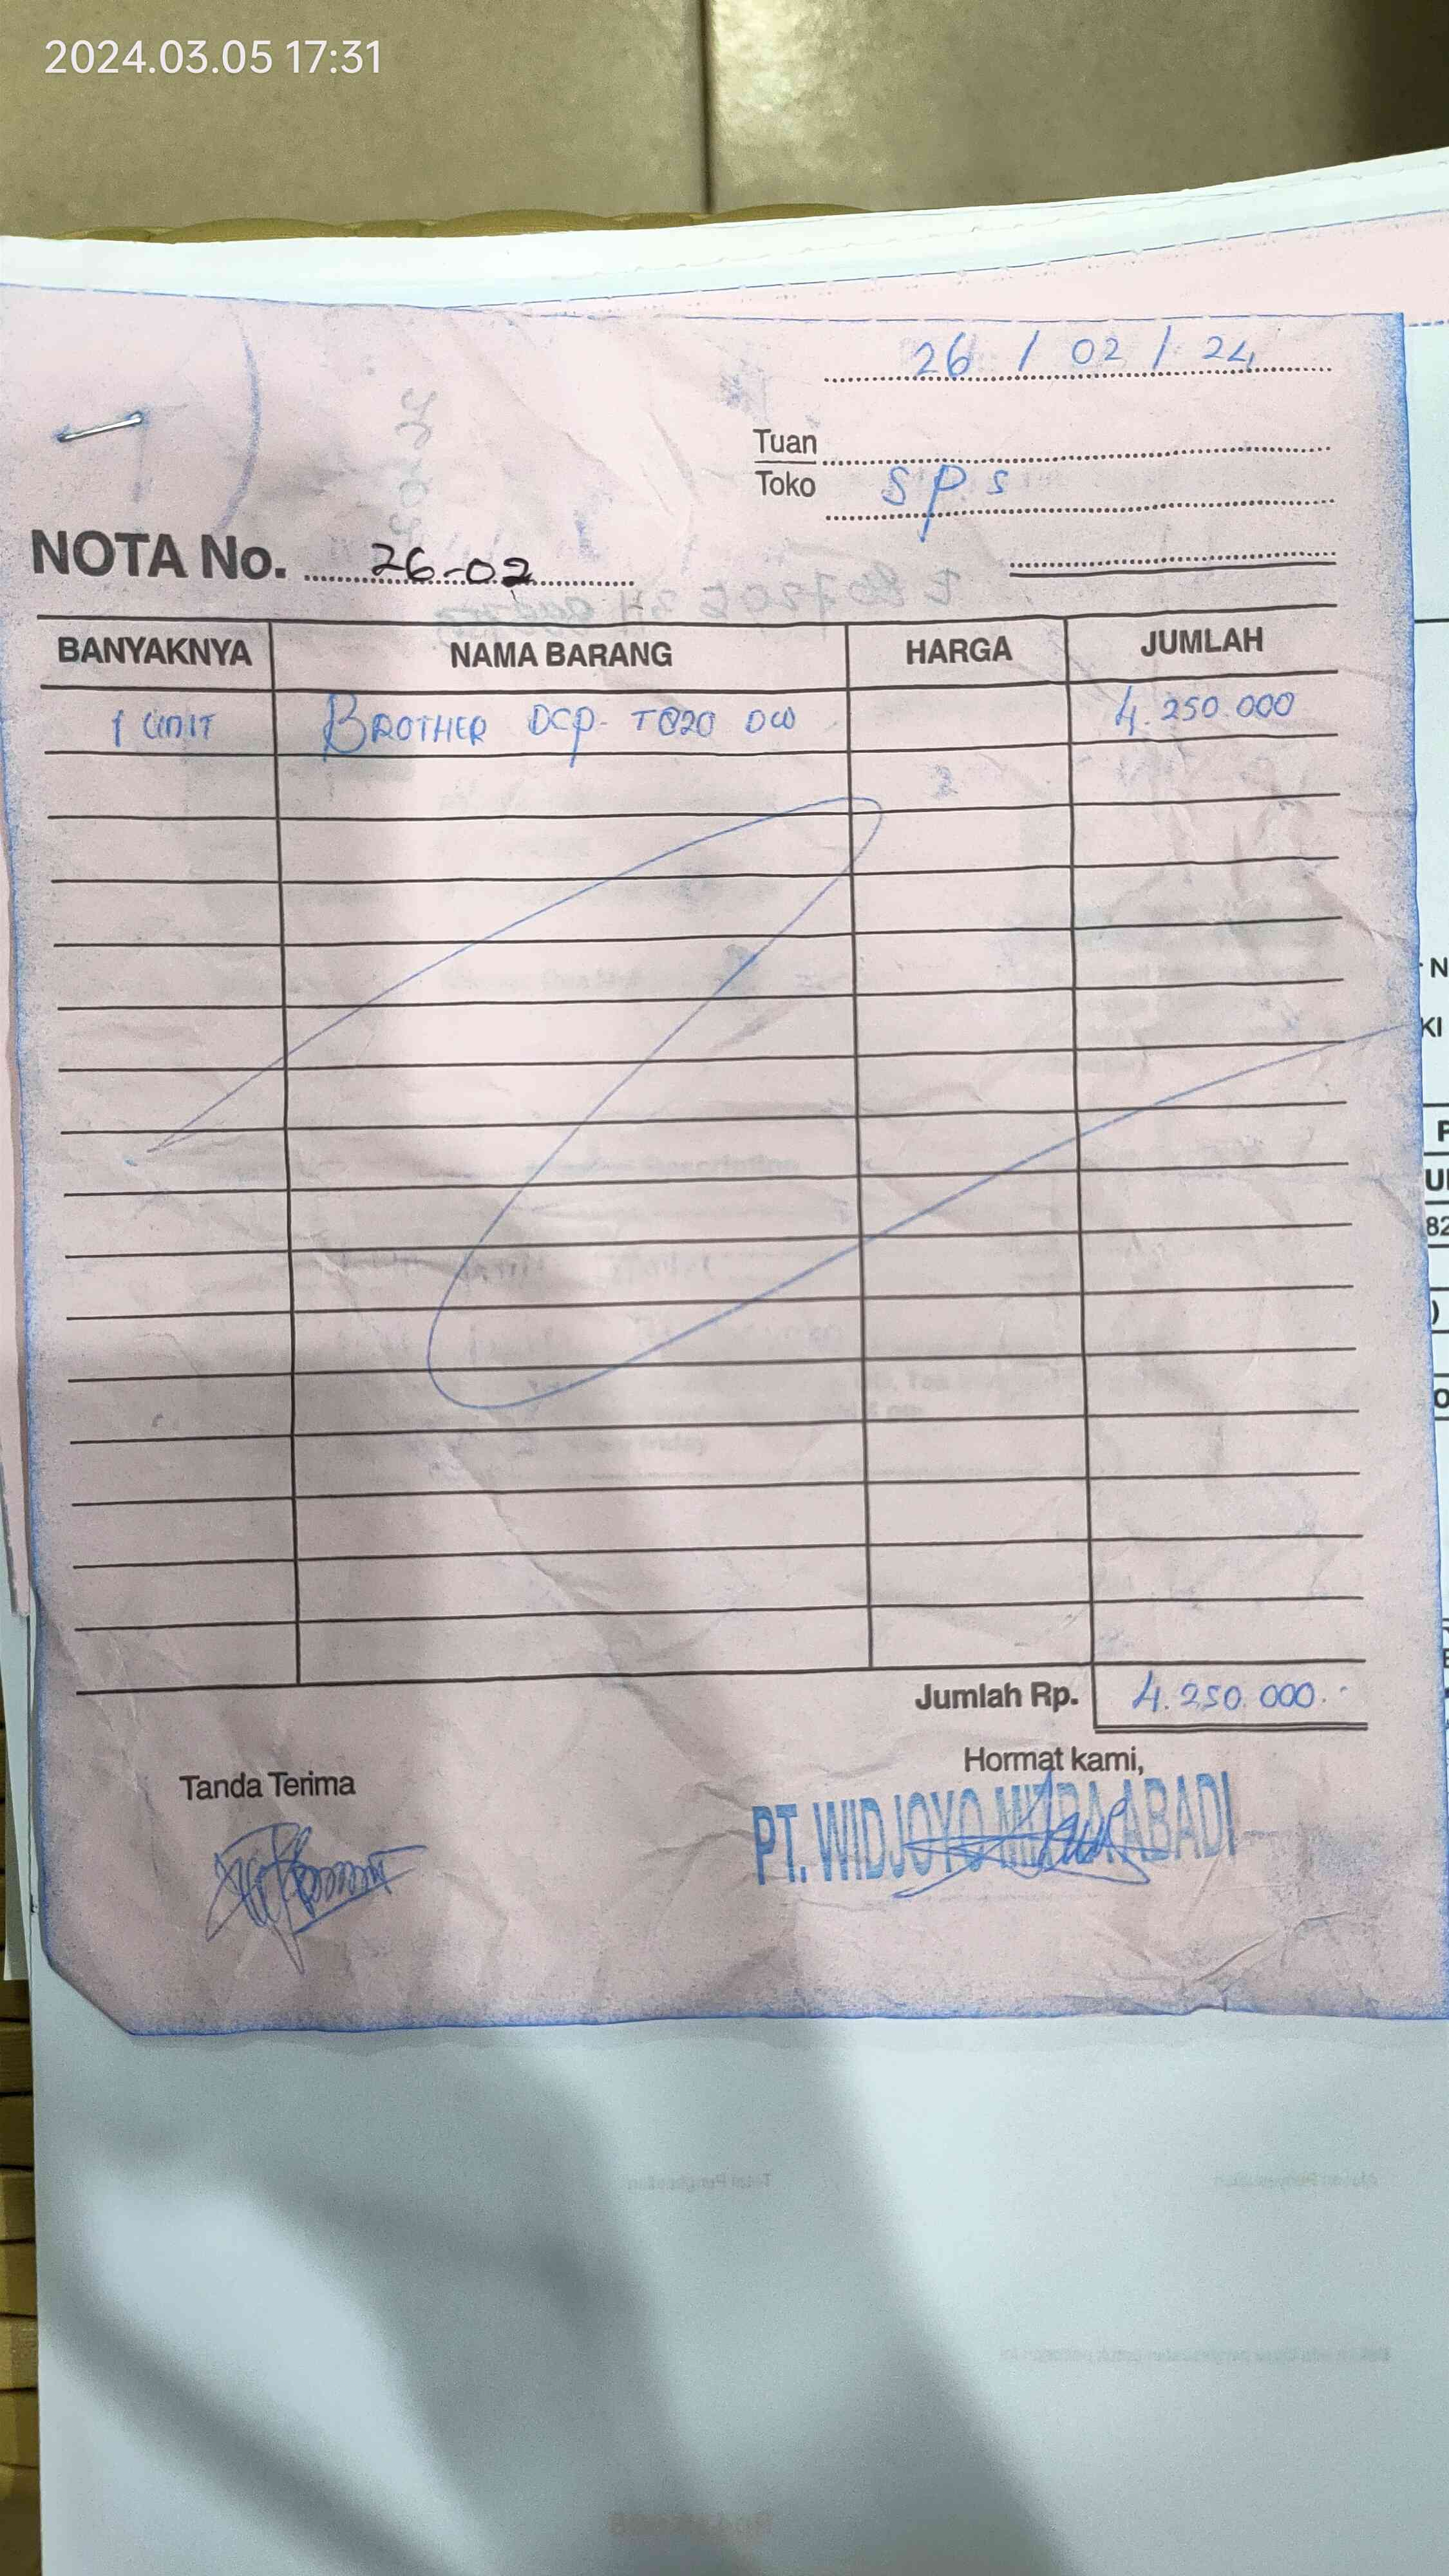 2024.03.05 17:31
26 / 02 / 24
Tuan
Toko SPS
NOTA No. 26-02
BANYAKNYA NAMA BARANG HARGA JUMLAH
1 UNIT BROTHER DCP- T820 DW 4.250.000
Jumlah Rp. 4.250.000.-
Tanda Terima Hormat kami,
PT. WIDJOYO MITRA ABADI